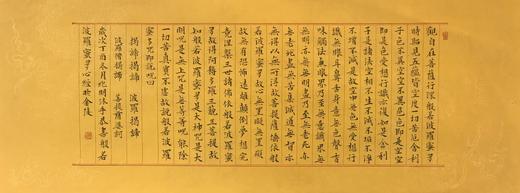 觀自在菩薩行深般若波羅蜜多
時照見五蘊皆空度一切苦厄舍利
子色不異空空不異色色即是空空
即是色受想行識亦復如是舍利
子是諸法空相不生不滅不垢不淨
不增不減是故空中無色無受想行
識無眼耳鼻舌身意無色聲香
味觸法無眼界乃至無意識界無
無明亦無無明盡乃至無老死亦
無老死盡無苦集滅道無智亦
無得以無所得故菩提薩埵依般
若波羅蜜多故心無罣礙無罣礙
故無有恐怖遠離顛倒夢想究
竟涅槃三世諸佛依般若波羅蜜
多故得阿耨多羅三藐三菩提故
知般若波羅蜜多是大神咒是大
明咒是無上咒是無等等咒能除
一切苦真實不虛故說般若波羅
蜜多咒即說咒曰
揭諦揭諦 波羅揭諦
波羅僧揭諦 菩提薩婆訶
歲次丁酉冬月 恭書般若
波羅蜜多心經於金陵